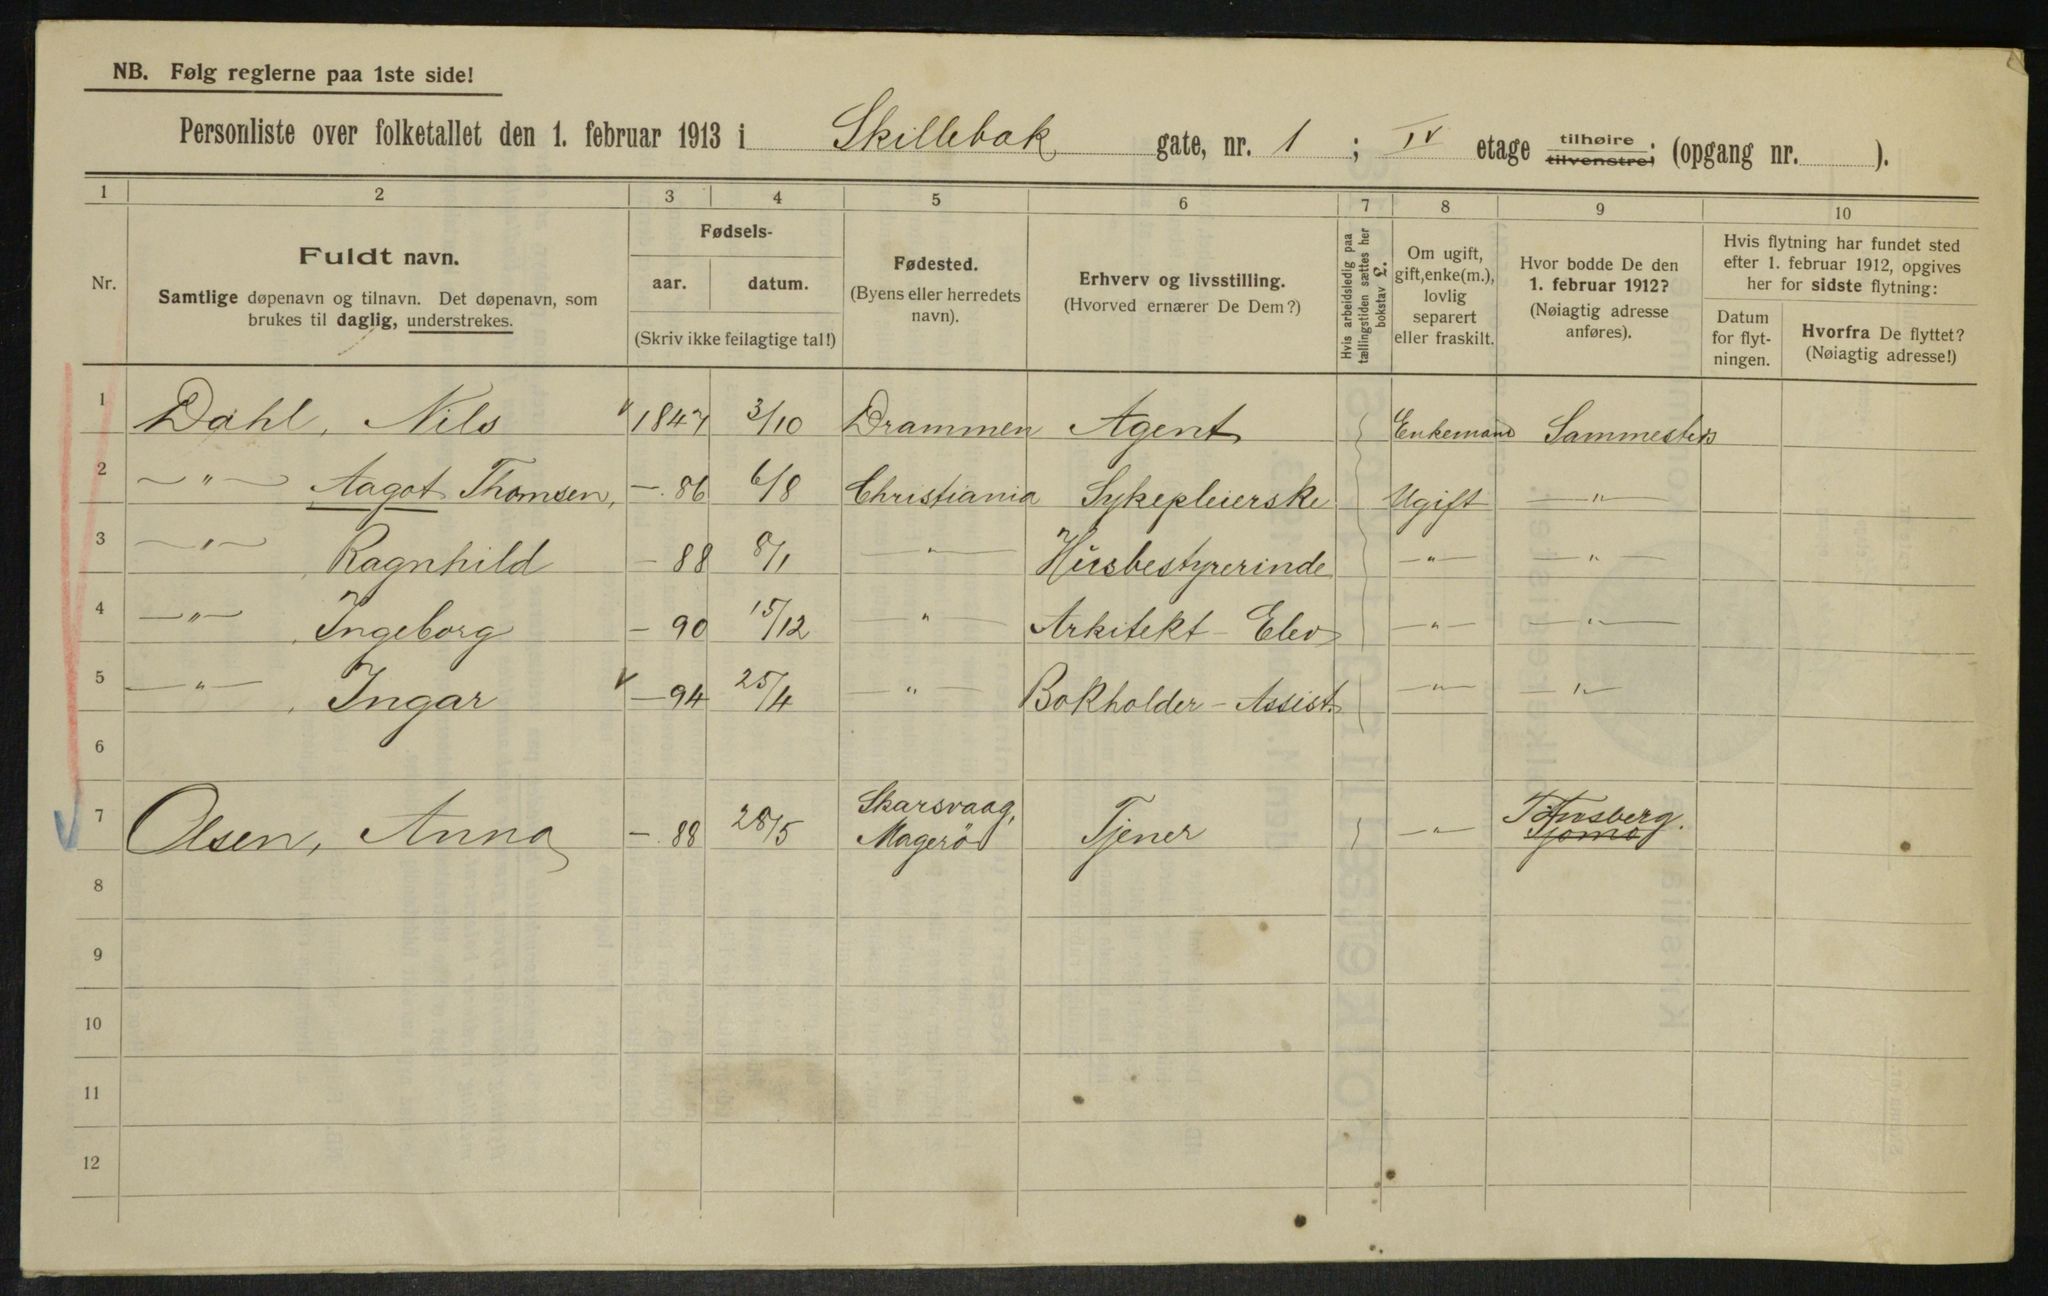 NB. Følg reglerne paa 1ste side!
Personliste over folketallet den 1. februar 1913 i Skillebæk gate, nr. 1 ; IV etage tilhøire. tilvenstre! (opgang nr. ).
1 2 3 4 5 6 7 8 9 10
Nr.
Fuldt navn.
Samtlige døpenavn og tilnavn. Det døpenavn, som
brukes til daglig, understrekes.
Fødsels-
aar. datum.
(Skriv ikke feilagtige tal!)
Fødested.
(Byens eller herredets
navn).
Erhverv og livsstilling.
(Hvorved ernærer De Dem?)
Hvis arbeidsledig paa
tællingstiden sættes her
bokstav £.
Om ugift,
gift, enke(m.),
lovlig
separert
eller fraskilt.
Hvor bodde De den
1. februar 1912?
(Nøiagtig adresse
anføres).
Hvis flytning har fundet sted
efter 1. februar 1912, opgives
her for sidste flytning:
Datum
for flyt-
ningen.
Hvorfra De flyttet?
(Nøiagtig adresse!)
1 Dahl, Nils 1847 3/10 Drammen Agent Enkemand Sammesteds
2 — " — Aagot Thomsen, — 86 6/8 Christiania Sykepleierske Ugift — " —
3 — " — Ragnhild — 88 8/1 — " — Husbestyrerinde — " — — " —
4 — " — Ingeborg — 90 15/12 — " — Arkitekt - Elev — " — — " —
5 — " — Ingar — 94 25/4 — " — Bokholder - Assist. — " — — " —
6
7 Olsen, Anna — 88 28/5 Skarsvaag, Magerö Tjener — " — Tönsberg. Tjømø
8
9
10
11
12